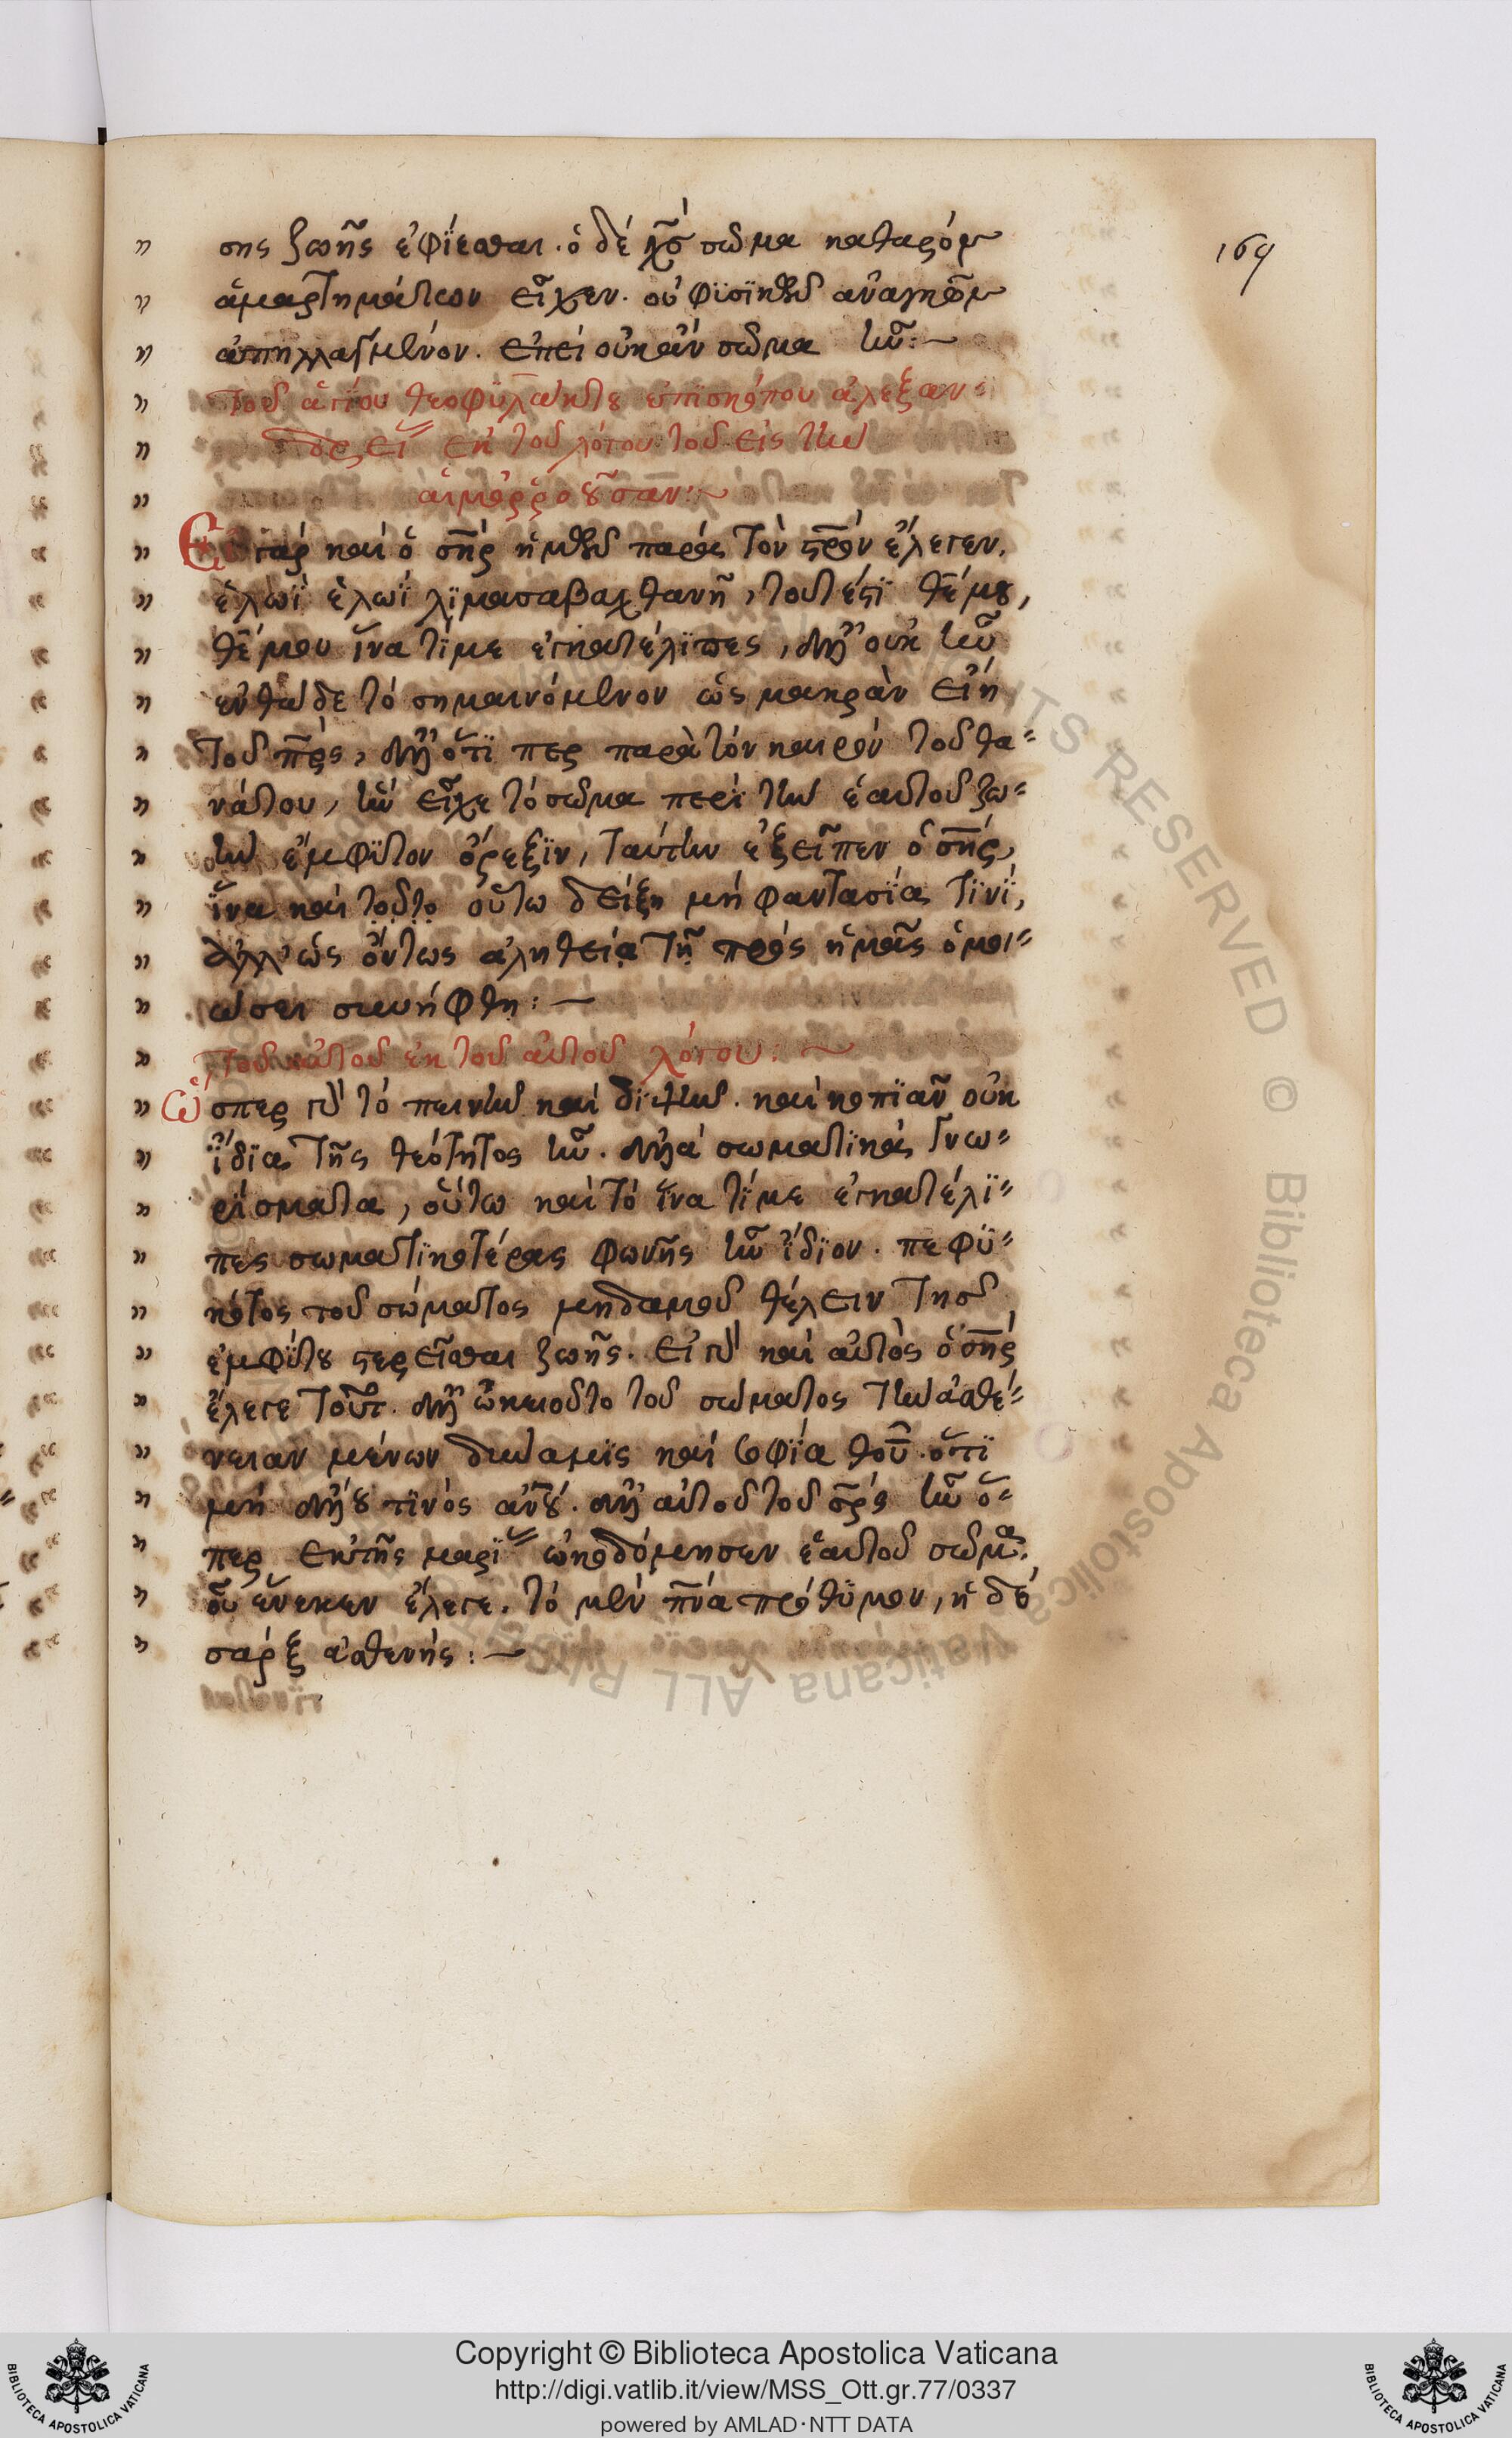 164
σης ζωῆς ἐφϊεσθαι· ὁ δέ χσ̅ σῶμα καθαρόν
ἁμαρτημάτων εἶχεν· οὐ φϊσϊκῶν ἀναγκῶν
ἀπηλλαγμένον· ἐπεί οὐκἄν σῶμα ἦν:~
Τοῦ ἁγίου θεοφϋλάκτου ἐπϊσκόπου ἀλεξαν=
δρεί ἐκ τοῦ λόγου τοῦ εἰς τὴν
αἱμορροοῦσαν:~
Εἰ γάρ καί ὁ ση̅ρ ἡμῶν παρά τόν στρ̅όν ἔλεγεν,
ἑλωΐ ἑλωΐ λϊμασαβαχθανῆ, τουτέστϊ θε̅μου,
θε̅μου ἵνα τίμε ἐγκατέλϊπες, ἀλλ' οὐκ ἦν
ἐνθάδε τό σημαινόμενον ὡς μακράν εἴη
τοῦ πρ̅ς, ἀλλ' ὅτϊ περ παρά τόν καιρόν τοῦ θα=
νάτου, ἦν εἶχε τό σῶμα περϊ τήν ἑαυτοῦ ζω=
ήν ἐμφϊτον ὄρεξϊν, ταύτην ἐξεῖπεν ὁ ση̅ρ,
ἵνα καί τοῦτο οὕτω δείξη μή φαντασία τϊνϊ,
ἀλλ' ὡς ὄντως ἀληθεία τῆ πρός ἡμᾶς ὁμοι=
ώσει συνήφθη:~
Τοῦ αὐτοῦ ἐκ τοῦ αὐτοῦ λόγου:~
Ὥσπερ γάρ τό πεινῆν καί δϊψῆν· καί κοπϊᾶν οὐκ
ἴδϊα τῆς θεότητος ἦν· ἀλλά σωματϊκά γνω=
ρϊσματα, οὕτω καί τό ἵνα τίμε ἐγκατέλϊ=
πες σωματϊκοτέρας φωνῆς ἦν ἴδϊον· πεφϋ=
κότος τοῦ σώματος μηδαμοῦ θέλειν τῆς
ἐμφϊτου στερεῖσθαι ζωῆς· Εἰ γάρ καί αὐτός ὁ ση̅ρ
ἔλεγε τοῦτ· ἀλλ' ὠκειοῦτο τοῦ σώματος τήν ἀσθέ=
νειαν μένων δύναμϊς καί σοφϊα θου̅· ὅτϊ
μή ἄλλου τϊνός ἀν̅ου· ἀλλ' αὐτοῦ τοῦ σρ̅ς ἦν ὅ=
περ ἐκτῆς μαρϊ ὠκοδόμησεν ἑαυτοῦ σῶμα·
οὗ ἕνεκεν ἔλεγε· τό μέν πν̅α πρόθϋμον, ἡ δέ
σάρξ ἀσθενής:~
Copyright © Biblioteca Apostolica Vaticana
http://digi.vatlib.it/view/MSS_Ott.gr.77/0337
powered by AMLAD·NTT DATA